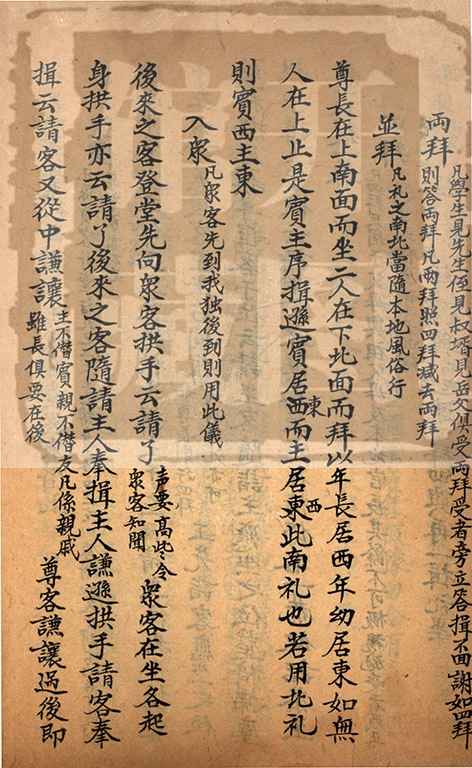 两拜凡學生見先生侄見叔婿見岳父俱受两拜受者旁立答揖不面謝如四拜
則答两拜凡两拜照四拜减去两拜
並拜凡礼之南北當隨本地風俗行
尊長在上南面而坐二人在下北面而拜以年長居西年幼居東如無
人在上止是賓主序揖遜賓居西東而主居東西此南礼也若用北礼
則賓西主東
入衆凡衆客先到我独後到則用此儀
後來之客登堂先向衆客拱手云請了声要高些令衆客知聞衆客在坐各起
身拱手亦云請了後來之客隨請主人奉揖主人謙遜拱手請客奉
揖云請客又從中謙讓主不僭賓親不僭友凡係親戚雖長俱要在後尊客謙讓過後即